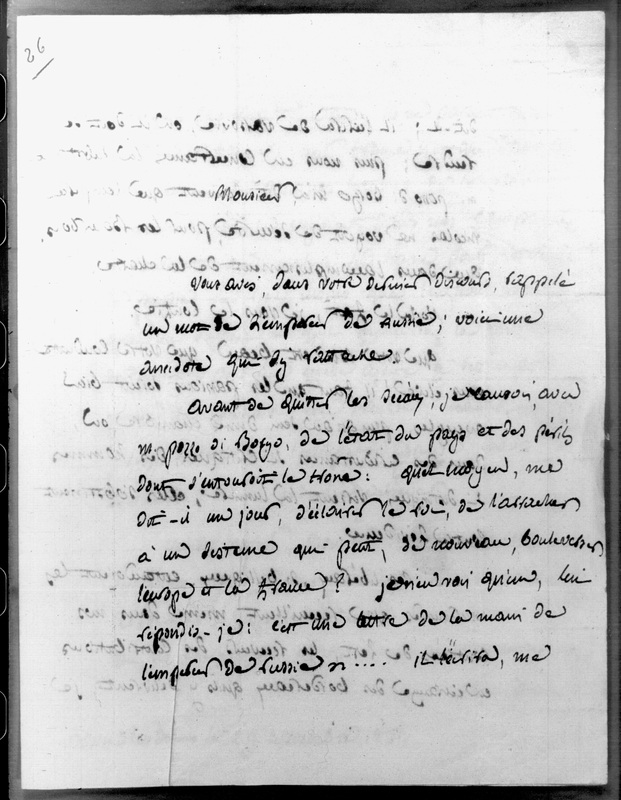 26
Monsieur
vous avez, dans votre dernier discours, rappelé
un mot de l'empereur de Russie; voici une
anecdote qui s'y rattache.
avant de quitter les sceaux, je causois, avec
m. pozzo di Borgo, de l'état du pays et des périls
dont s'entouroit le trone: quel moyen, me
dit-il un jour, d'éclairer le roi, de l'arracher
à un sisteme qui peut, de nouveau, bouleverser
l'europe et la france? je n'en vois qu'un, lui
répondis-je: c'est une lettre de la main de
l'empereur de russie .... il l'écrira, me